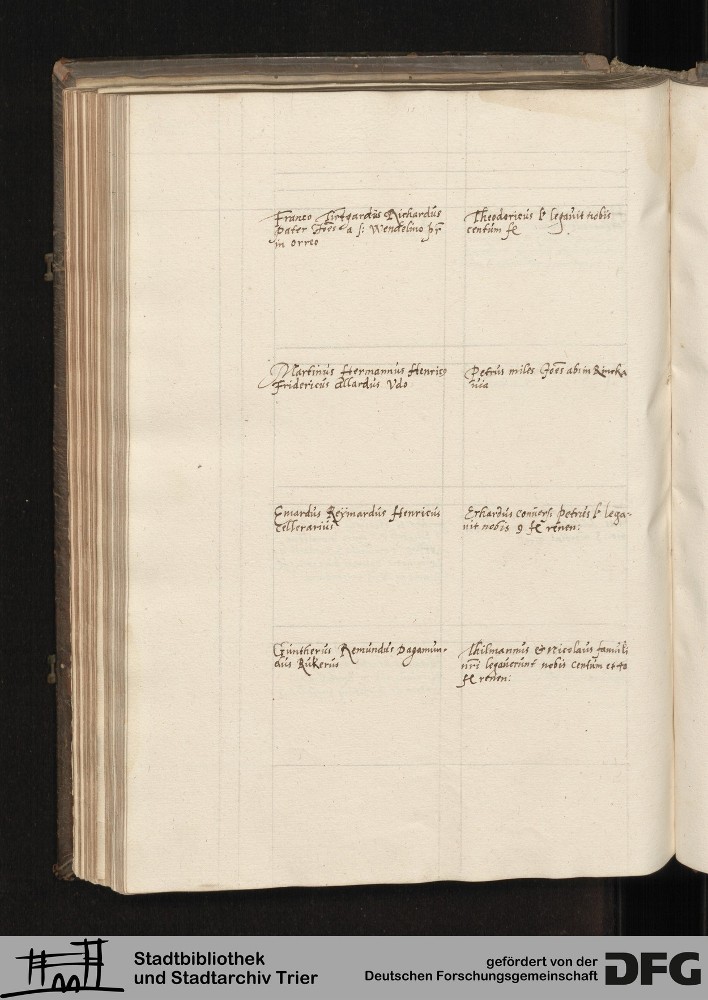 Franco Richardus
pater Joes a s: Wendelino pr
in orreo
Theodericus legauit nobis
centum fl
Martinus Hermannus Henric9
Fridericus Allardus Udo
Petrus miles Joes abim Rincka
uia
Emardus Reÿmardus Henricus
cellerarius
Erhardus conuers Petrus lega-
uit nobis 9 fl renen:
Guntherus Remundus Pagamun-
dus Rukerus
Thilmannus et Nicolaus famuli
nri legauerunt nobis centum et 40
fl renen:
Stadtbibliothek
und Stadtarchiv Trier
gefördert von der
Deutschen Forschungsgemeinschaft
DFG